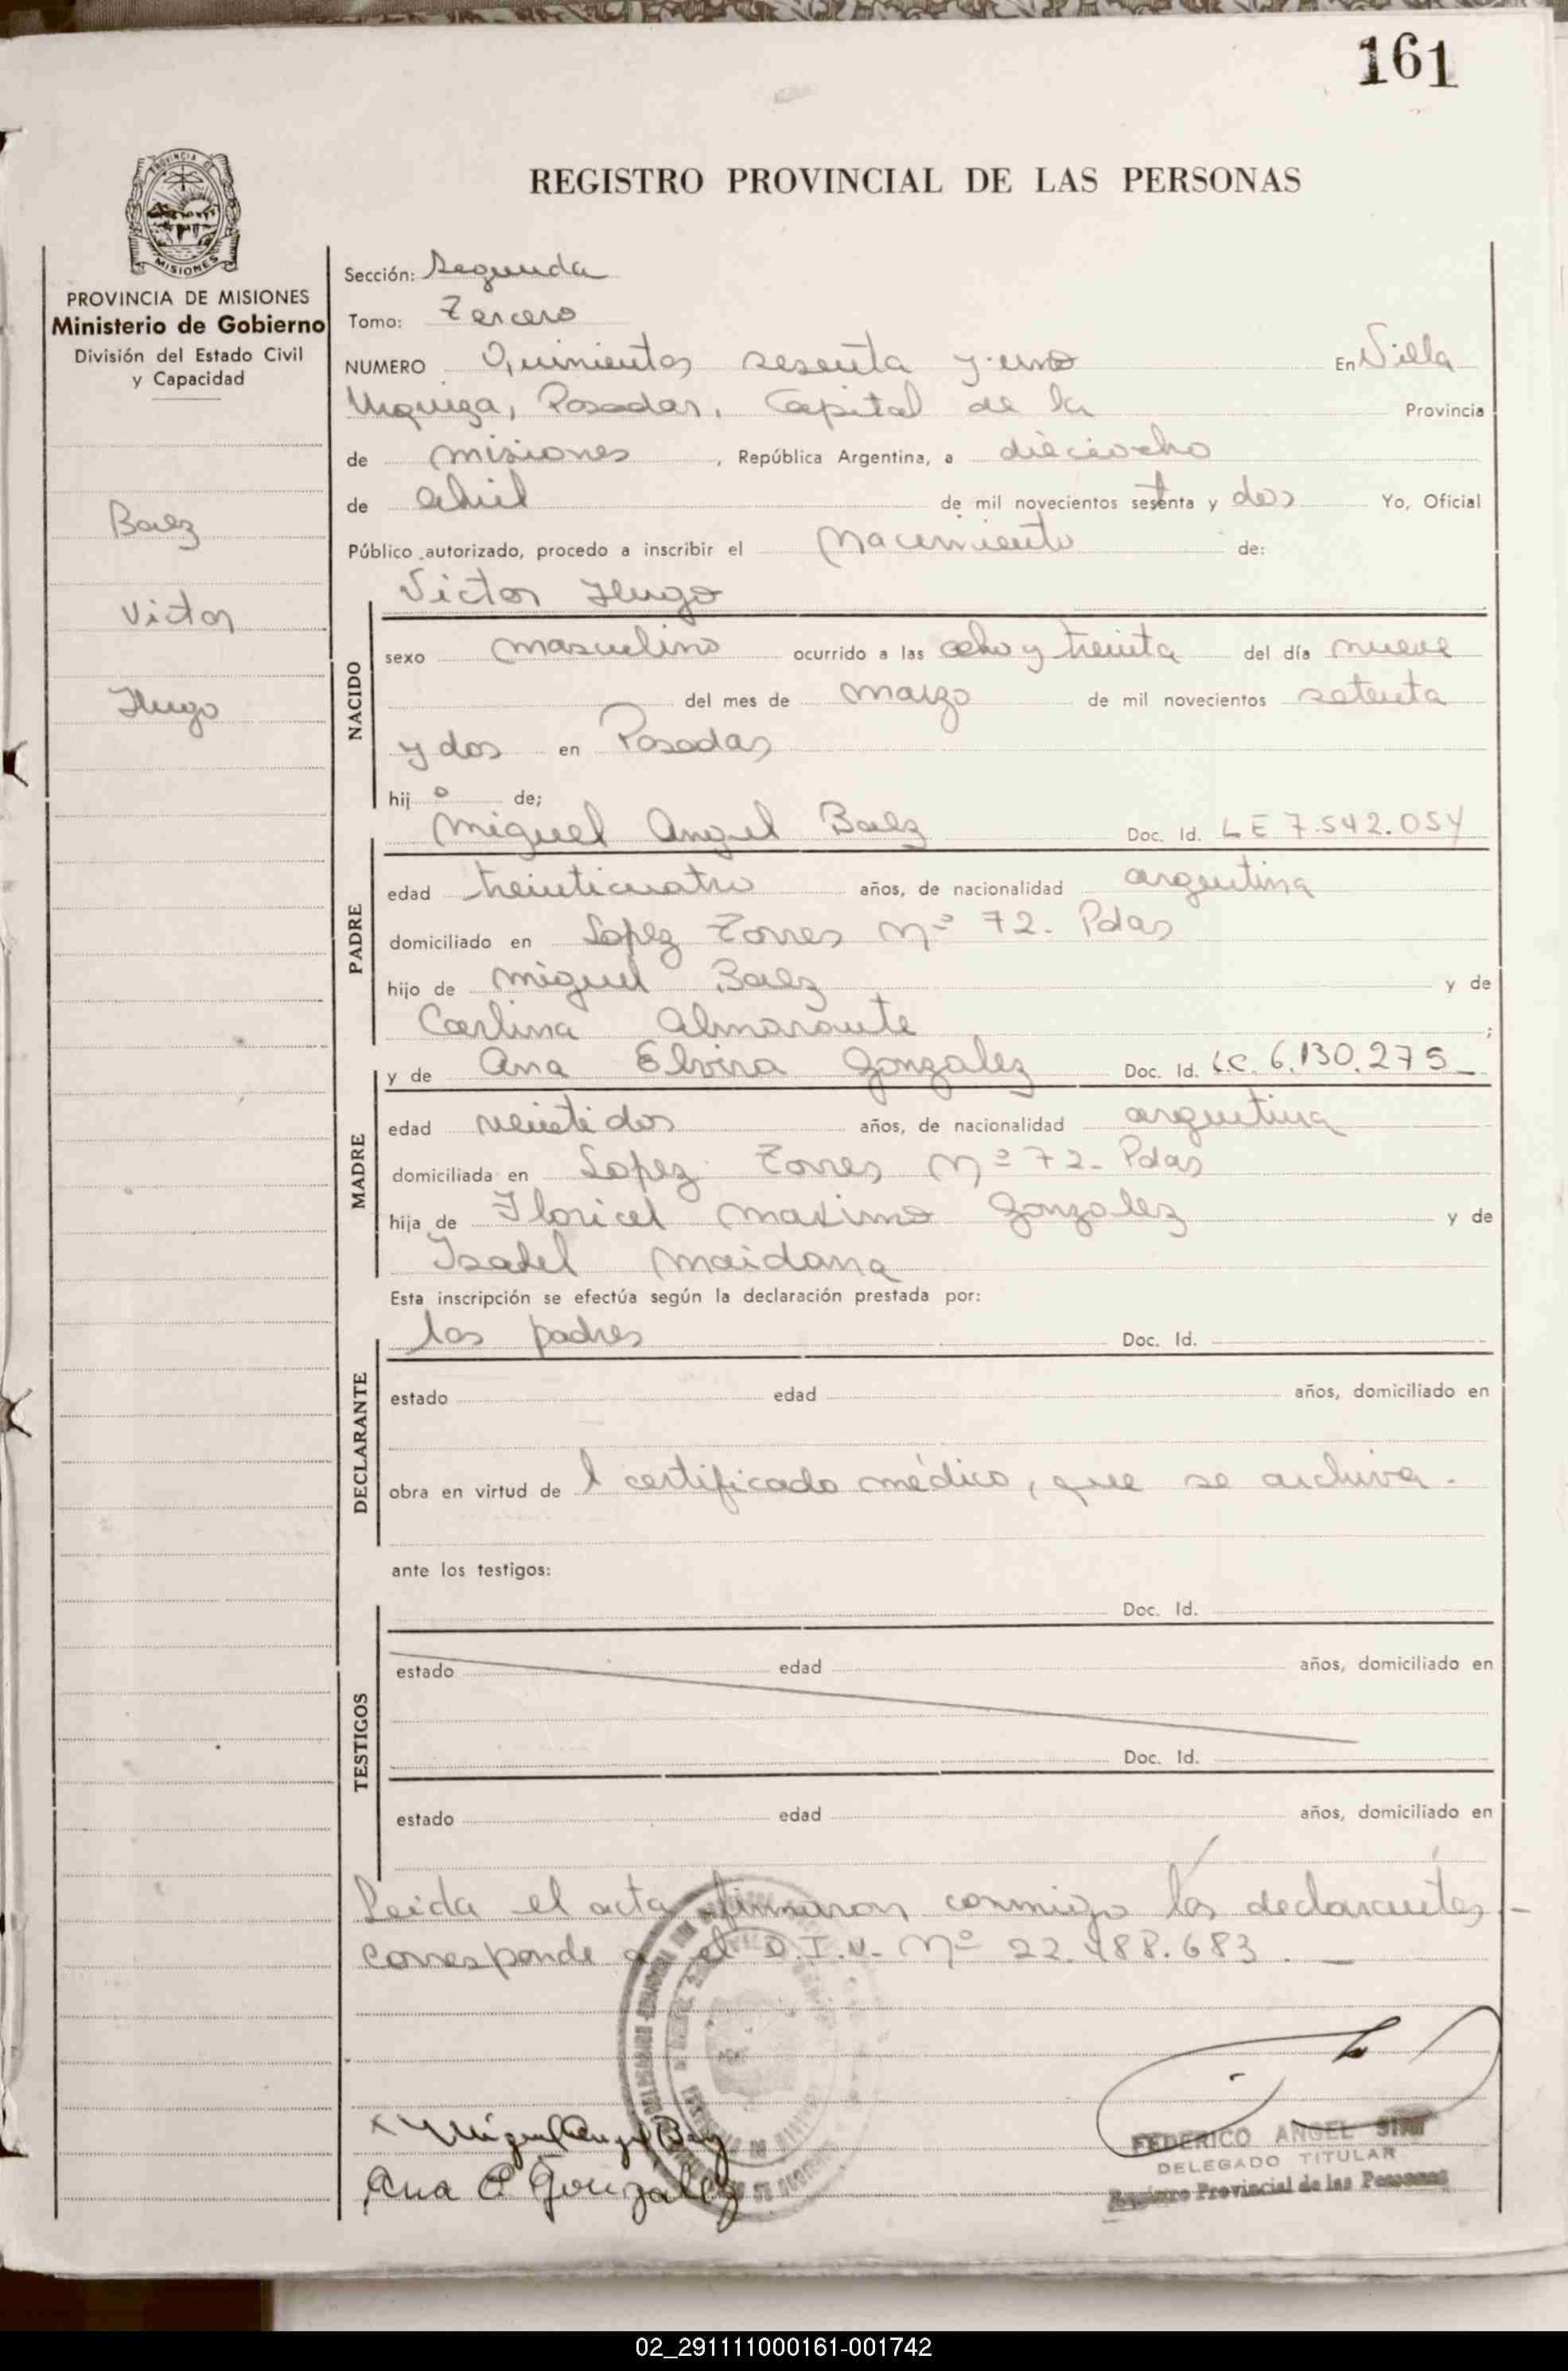 161
PROVINCIA DE
MISIONES
REGISTRO PROVINCIAL DE LAS PERSONAS
PROVINCIA DE MISIONES
Ministerio de Gobierno
División del Estado Civil
y Capacidad
Baez
Victor
Hugo
Sección: Segunda
Tomo: Tercero
NUMERO Quinientos sesenta y uno En Villa
Urquiza, Posadas, Capital de la Provincia
de misiones, República Argentina, a dieciocho
de abril de mil novecientos setenta y dos Yo, Oficial
Público autorizado, procedo a inscribir el nacimiento de:
NACIDO
Victor Hugo
sexo masculino ocurrido a las ocho y treinta del día nueve
del mes de marzo de mil novecientos setenta
y dos en Posadas
hijo de;
PADRE
Miguel Angel Baez Doc. Id. LE 7.542.054
edad treinticuatro años, de nacionalidad argentina
domiciliado en Lopez Torres Nº 72. Pdas
hijo de Miguel Baez y de
Carlina Almarante;
MADRE
y de Ana Elvira Gonzalez Doc. Id. L.C. 6.130.275
edad veintidos años, de nacionalidad argentina
domiciliada en Lopez Torres Nº 72- Pdas
hija de Floricel Maximo Gonzalez y de
Isabel Maidana
Esta inscripción se efectúa según la declaración prestada por:
DECLARANTE
los padres Doc. Id.
estado edad años, domiciliado en
obra en virtud de l certificado médico, que se archiva.
ante los testigos:
TESTIGOS
Doc. Id.
estado edad años, domiciliado en
Doc. Id.
estado edad años, domiciliado en
Leida el acta firmaron conmigo los declarantes -
corresponde a el D.I.U. Nº 22.488.683. —
Miguel Angel Baez
Ana E Gonzalez
FEDERICO ANGEL
DELEGADO TITULAR
Registro Provincial de las Personas
02_291111000161-001742